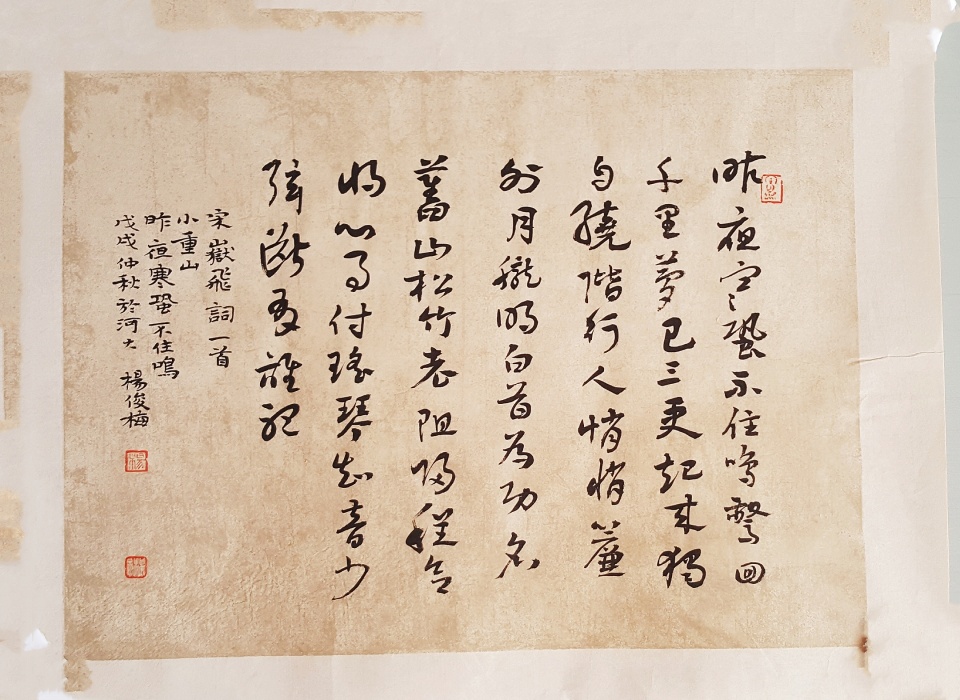 昨夜寒蛩不住鳴驚回
千里夢已三更起來獨
自繞階行人悄悄簾
外月朧明白首為功名
舊山松竹老阻歸程欲
將心事付瑤琴知音少
弦斷有誰聽
宋嶽飛詞一首
小重山
昨夜寒蛩不住鳴
戊戌仲秋於河大 楊俊梅